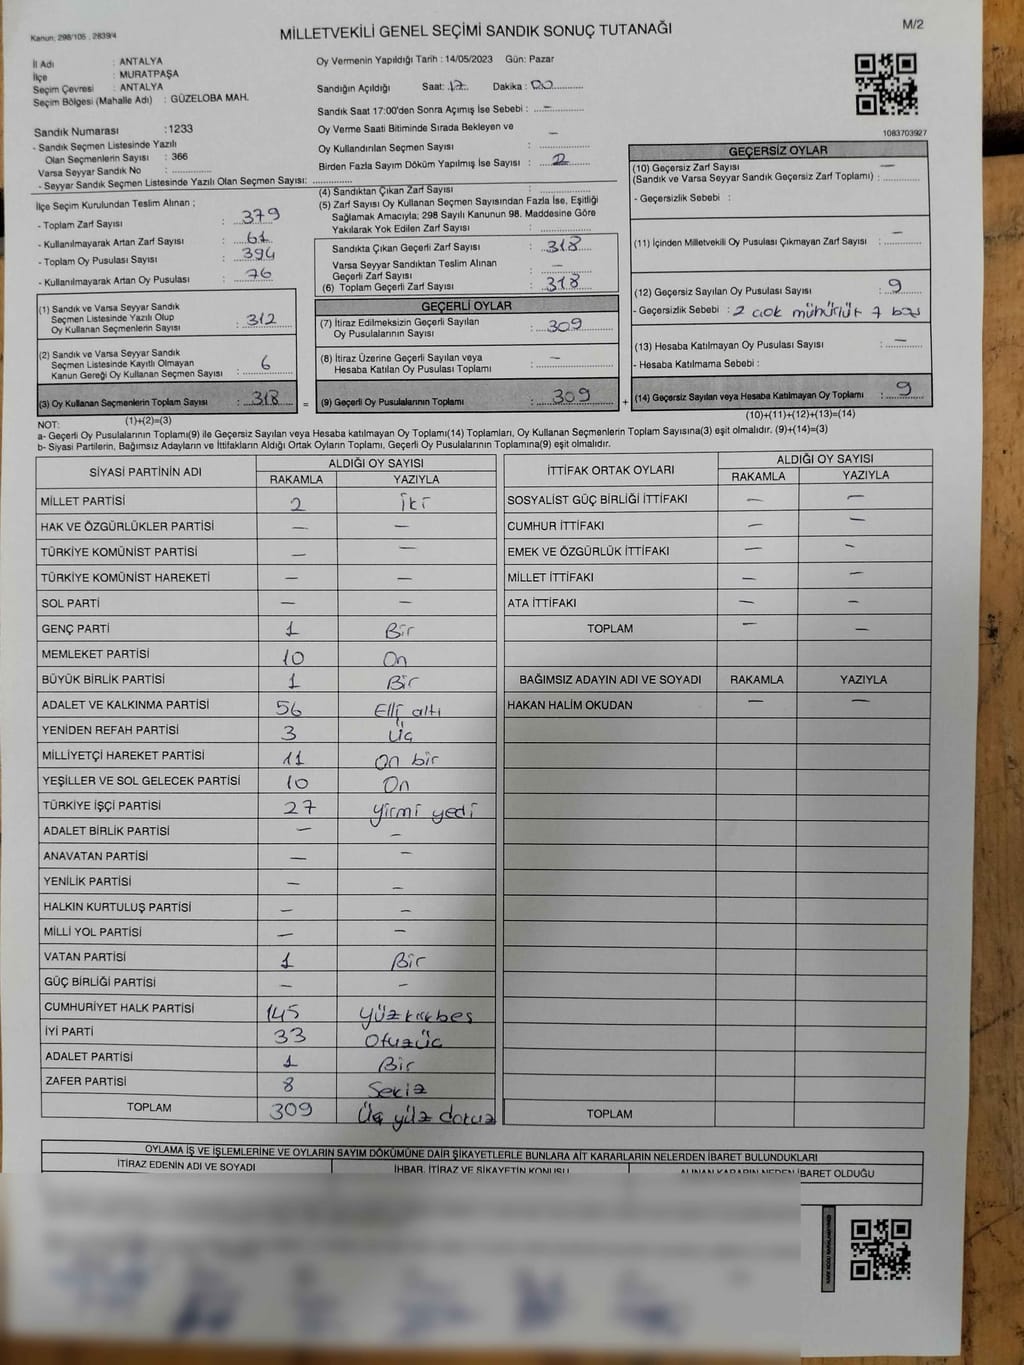 Kanun: 298/105 , 2839/4
MİLLETVEKİLİ GENEL SEÇİMİ SANDIK SONUÇ TUTANAĞI
M/2
İl Adı : ANTALYA
İlçe : MURATPAŞA
Seçim Çevresi : ANTALYA
Seçim Bölgesi (Mahalle Adı) : GÜZELOBA MAH.
Sandık Numarası :1233
- Sandık Seçmen Listesinde Yazılı
Olan Seçmenlerin Sayısı : 366
Varsa Seyyar Sandık No :
- Seyyar Sandık Seçmen Listesinde Yazılı Olan Seçmen Sayısı:
Oy Vermenin Yapıldığı Tarih : 14/05/2023 Gün: Pazar
Sandığın Açıldığı Saat: 17 Dakika : 00
Sandık Saat 17:00'den Sonra Açımış İse Sebebi : –
Oy Verme Saati Bitiminde Sırada Bekleyen ve
Oy Kullandırılan Seçmen Sayısı : –
Birden Fazla Sayım Döküm Yapılmış İse Sayısı : 2
1083703927
İlçe Seçim Kurulundan Teslim Alınan ;
- Toplam Zarf Sayısı : 379
- Kullanılmayarak Artan Zarf Sayısı : 61
- Toplam Oy Pusulası Sayısı : 394
- Kullanılmayarak Artan Oy Pusulası : 76
(1) Sandık ve Varsa Seyyar Sandık
Seçmen Listesinde Yazılı Olup
Oy Kullanan Seçmenlerin Sayısı : 312
(2) Sandık ve Varsa Seyyar Sandık
Seçmen Listesinde Kayıtlı Olmayan
Kanun Gereği Oy Kullanan Seçmen Sayısı : 6
(3) Oy Kullanan Seçmenlerin Toplam Sayısı : 318 =
(1)+(2)=(3)
(4) Sandıktan Çıkan Zarf Sayısı :
(5) Zarf Sayısı Oy Kullanan Seçmen Sayısından Fazla İse, Eşitliği
Sağlamak Amacıyla; 298 Sayılı Kanunun 98. Maddesine Göre
Yakılarak Yok Edilen Zarf Sayısı :
Sandıkta Çıkan Geçerli Zarf Sayısı : 318
Varsa Seyyar Sandıktan Teslim Alınan
Geçerli Zarf Sayısı : –
(6) Toplam Geçerli Zarf Sayısı : 318
GEÇERLİ OYLAR
(7) İtiraz Edilmeksizin Geçerli Sayılan
Oy Pusulalarının Sayısı : 309
(8) İtiraz Üzerine Geçerli Sayılan veya
Hesaba Katılan Oy Pusulası Toplamı : –
(9) Geçerli Oy Pusulalarının Toplamı : 309 +
GEÇERSİZ OYLAR
(10) Geçersiz Zarf Sayısı –
(Sandık ve Varsa Seyyar Sandık Geçersiz Zarf Toplamı) :
- Geçersizlik Sebebi :
(11) İçinden Milletvekili Oy Pusulası Çıkmayan Zarf Sayısı : –
(12) Geçersiz Sayılan Oy Pusulası Sayısı : 9
- Geçersizlik Sebebi : 2 çok mühürlü 7 boş
(13) Hesaba Katılmayan Oy Pusulası Sayısı : –
- Hesaba Katılmama Sebebi :
(14) Geçersiz Sayılan veya Hesaba Katılmayan Oy Toplamı : 9
(10)+(11)+(12)+(13)=(14)
NOT:
a- Geçerli Oy Pusulalarının Toplamı(9) ile Geçersiz Sayılan veya Hesaba katılmayan Oy Toplamı(14) Toplamları, Oy Kullanan Seçmenlerin Toplam Sayısına(3) eşit olmalıdır. (9)+(14)=(3)
b- Siyasi Partilerin, Bağımsız Adayların ve İttifakların Aldığı Ortak Oyların Toplamı, Geçerli Oy Pusulalarının Toplamına(9) eşit olmalıdır.
SİYASİ PARTİNİN ADI ALDIĞI OY SAYISI
RAKAMLA YAZIYLA
MİLLET PARTİSİ 2 İki
HAK VE ÖZGÜRLÜKLER PARTİSİ – –
TÜRKİYE KOMÜNİST PARTİSİ – –
TÜRKİYE KOMÜNİST HAREKETİ – –
SOL PARTİ – –
GENÇ PARTİ 1 Bir
MEMLEKET PARTİSİ 10 On
BÜYÜK BİRLİK PARTİSİ 1 Bir
ADALET VE KALKINMA PARTİSİ 56 Elli altı
YENİDEN REFAH PARTİSİ 3 Üç
MİLLİYETÇİ HAREKET PARTİSİ 11 On bir
YEŞİLLER VE SOL GELECEK PARTİSİ 10 On
TÜRKİYE İŞÇİ PARTİSİ 27 yirmi yedi
ADALET BİRLİK PARTİSİ – –
ANAVATAN PARTİSİ – –
YENİLİK PARTİSİ – –
HALKIN KURTULUŞ PARTİSİ – –
MİLLİ YOL PARTİSİ – –
VATAN PARTİSİ 1 Bir
GÜÇ BİRLİĞİ PARTİSİ – –
CUMHURİYET HALK PARTİSİ 145 Yüzkırkbeş
İYİ PARTİ 33 Otuzüç
ADALET PARTİSİ 1 Bir
ZAFER PARTİSİ 8 Sekiz
TOPLAM 309 Üç yüz dokuz
İTTİFAK ORTAK OYLARI ALDIĞI OY SAYISI
RAKAMLA YAZIYLA
SOSYALİST GÜÇ BİRLİĞİ İTTİFAKI – –
CUMHUR İTTİFAKI – –
EMEK VE ÖZGÜRLÜK İTTİFAKI – –
MİLLET İTTİFAKI – –
ATA İTTİFAKI – –
TOPLAM – –
BAĞIMSIZ ADAYIN ADI VE SOYADI RAKAMLA YAZIYLA
HAKAN HALİM OKUDAN – –
TOPLAM
OYLAMA İŞ VE İŞLEMLERİNE VE OYLARIN SAYIM DÖKÜMÜNE DAİR ŞİKAYETLERLE BUNLARA AİT KARARLARIN NELERDEN İBARET BULUNDUKLARI
İTİRAZ EDENİN ADI VE SOYADI İHBAR, İTİRAZ VE ŞİKAYETİN KONUSU ALINAN KARARIN NEDEN İBARET OLDUĞU